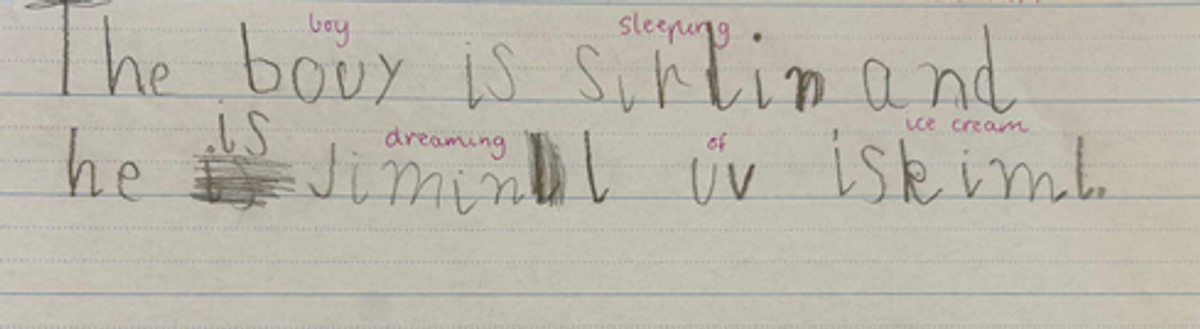 boy sleeping
The bouy is sirlin and
is dreaming of ice cream
he jimin l uv iskiml.